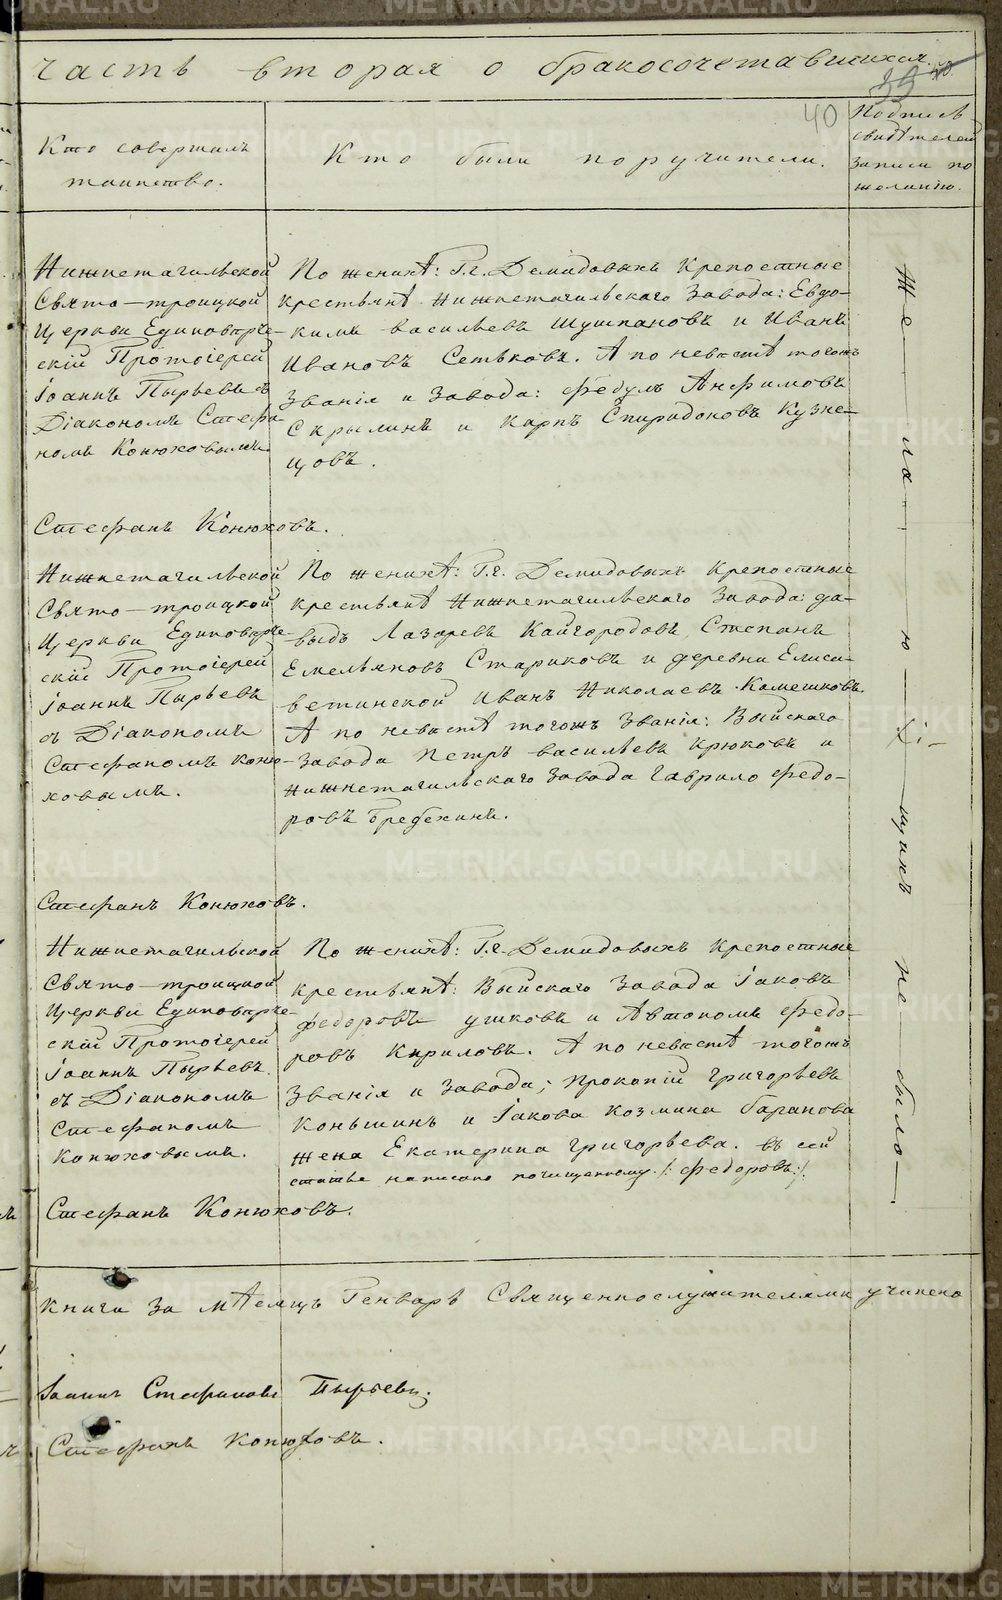 Часть вторая о бракосочетавшихся.
39
40
Кто совершилъ
таинство.
Кто были поручители.
Подпись
свидѣтелей
записи по
желанію.
Нижнетагильской
Свято-троицкой
Церкви Единовѣрче-
скій Протоіерей
Іоаннъ Пырьевъ съ
Діакономъ Стефа-
номъ Конюховымъ.
Стефанъ Конюховъ.
По женихѣ: Г.г. Демидовыхъ Крепостные
крестьянѣ Нижнетагильскаго Завода: Евдо-
кимъ васильевъ Шушпановъ и Иванъ
Ивановъ Сетьковъ. А по невѣстѣ тогожъ
Званія и Завода: Федулъ Анфимовъ
Скрылинъ и Карпъ Спиридоновъ Кузне-
цовъ.
Нижнетагильской
Свято-троицкой
Церкви Единовѣрче-
скій Протоіерей
Іоаннъ Пырьевъ
съ Діакономъ
Стефаномъ Коню-
ховымъ.
Стефанъ Конюховъ.
По женихѣ: Г.г. Демидовыхъ Крепостные
крестьянѣ Нижнетагильскаго Завода: да-
выдъ Лазаревъ Кайгородовъ, Степанъ
Емельяновъ Стариковъ и деревни Елиса-
ветинской Иванъ Николаевъ Камешковъ.
А по невѣстѣ тогожъ Званія: Выйскаго
Завода Петръ васильевъ Крюковъ и
Нижнетагильскаго Завода Гаврило Федо-
ровъ Гребехинъ.
Нижнетагильской
Свято-троицкой
Церкви Единовѣрче-
скій Протоіерей
Іоаннъ Пырьевъ
съ Діакономъ
Стефаномъ
Конюховымъ.
Стефанъ Конюховъ.
По женихѣ: Г.г. Демидовыхъ Крепостные
крестьянѣ: Выйскаго Завода Іаковъ
федоровъ ушковъ и Автономъ Федо-
ровъ Кириловъ. А по невѣстѣ тогожъ
Званія и Завода; Прокопій Григорьевъ
Коньшинъ и Іакова Козмина Баранова
жена Екатерина Григорьева. въ сей
статье написано почищенному /: Федоровъ:/
Желающихъ не было
Книги За мѣсяцъ Генварь Священнослужителями учинено
Іоаннъ Стефановъ Пырьевъ.
Стефанъ Конюховъ.
METRIKI.GASO-URAL.RU